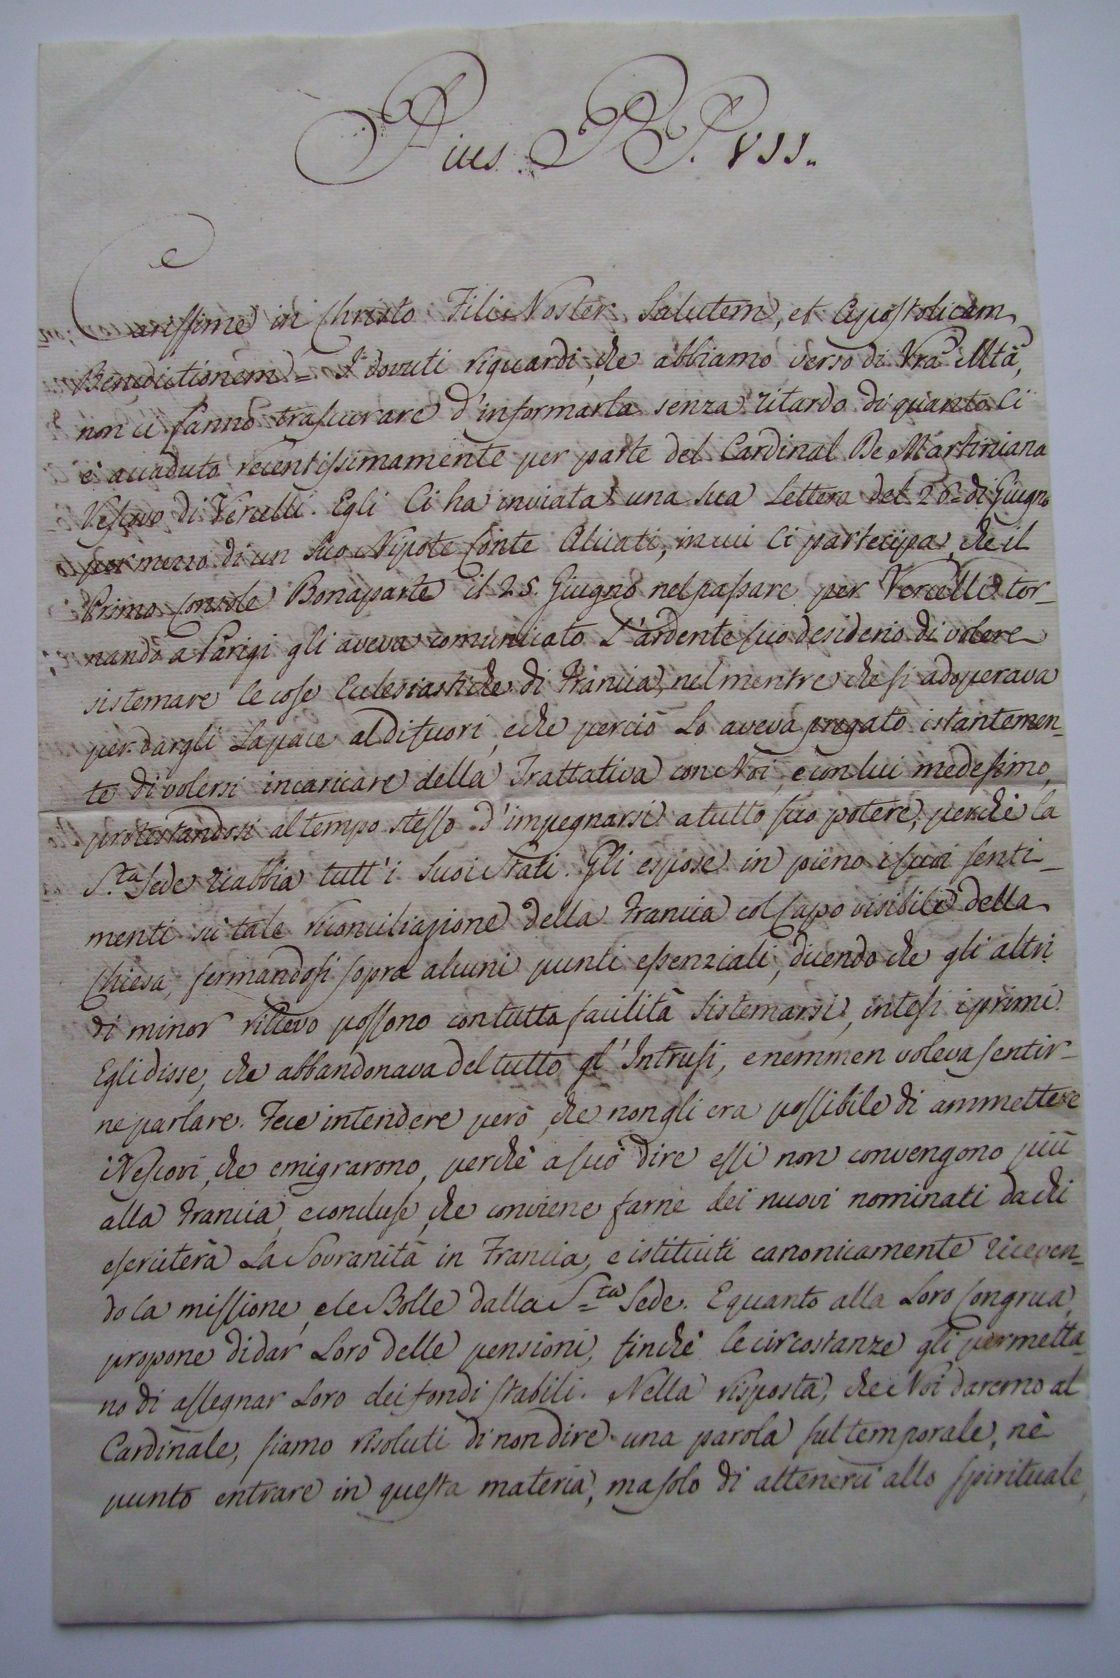 Pius P.P. VII.
Carissime in Christo Fili Noster Salutem, et Apostolicam
Benedictionem = I dovuti riguardi, che abbiamo verso di Vrã Mtà,
non ci fanno trascurare d'informarla senza ritardo di quanto Ci
è accaduto recentissimamente per parte del Cardinal De Martiniana
Vescovo di Vercelli. Egli Ci ha inviata una sua Lettera del 26 = di Giugno
per mezzo di un suo Nipote Conte Alciati, in cui Ci partecipa, che il
Primo Console Bonaparte il 25. Giugno nel passare per Vercelli tor-
nando a Parigi gli aveva comunicato L'ardente suo desiderio di volere
sistemare le cose Ecclesiastiche di Francia, nel mentre che si adoperava
per dargli La pace al di fuori, e che perciò Lo aveva pregato istantemen-
te di volersi incaricare della Trattativa con Noi, e con lui medesimo,
protestandosi al tempo stesso d'impegnarsi a tutto suo potere, perchè la
S.ta Sede riabbia tutt'i suoi Stati. Gli espose in pieno i suoi senti-
menti su tale riconciliazione della Francia col Capo visibile della
Chiesa, fermandosi sopra alcuni punti essenziali, dicendo che gli altri
di minor rilievo possono con tutta facilità sistemarsi, intesi i primi.
Egli disse, che abbandonava del tutto gl'Intrusi, e nemmen voleva sentir-
ne parlare. Fece intendere però, che non gli era possibile di ammettere
i Vescovi, che emigrarono, perchè a suo dire essi non convengono più
alla Francia, e concluse, che conviene farne dei nuovi nominati da chi
eserciterà La Sovranità in Francia, e istituiti canonicamente riceven-
do la missione, e le Bolle dalla S.ta Sede. E quanto alla Loro Congrua,
propone di dar Loro delle pensioni, finchè le circostanze gli permetta-
no di assegnar Loro dei fondi stabili. Nella risposta, che Noi daremo al
Cardinale, siamo risoluti di non dire una parola sul temporale, nè
punto entrare in questa materia, ma solo di attenerci allo spirituale,